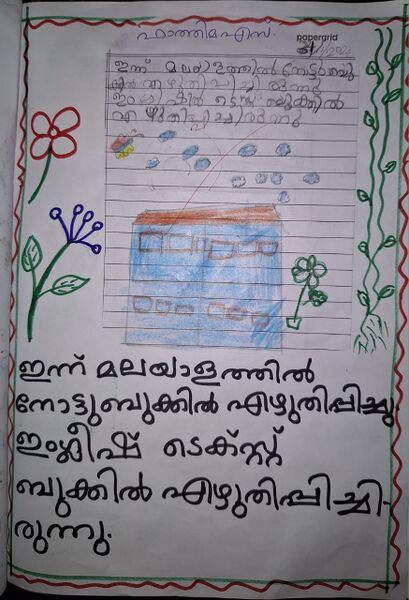 ഫാത്തിമ എസ്.
papergrid
ഇന്ന് മലയാളത്തിൽ നോട്ടുബു
ക്കിൽ എഴുതിപ്പിച്ചു
ഇംഗ്ലീഷിൽ ടെസ്റ്റ് ബുക്കിൽ
എഴുതിപ്പിച്ചിരുന്നു
ഇന്ന് മലയാളത്തിൽ
നോട്ടുബുക്കിൽ എഴുതിപ്പിച്ചു.
ഇംഗ്ലീഷ് ടെക്സ്റ്റ്
ബുക്കിൽ എഴുതിപ്പിച്ചി-
രുന്നു.